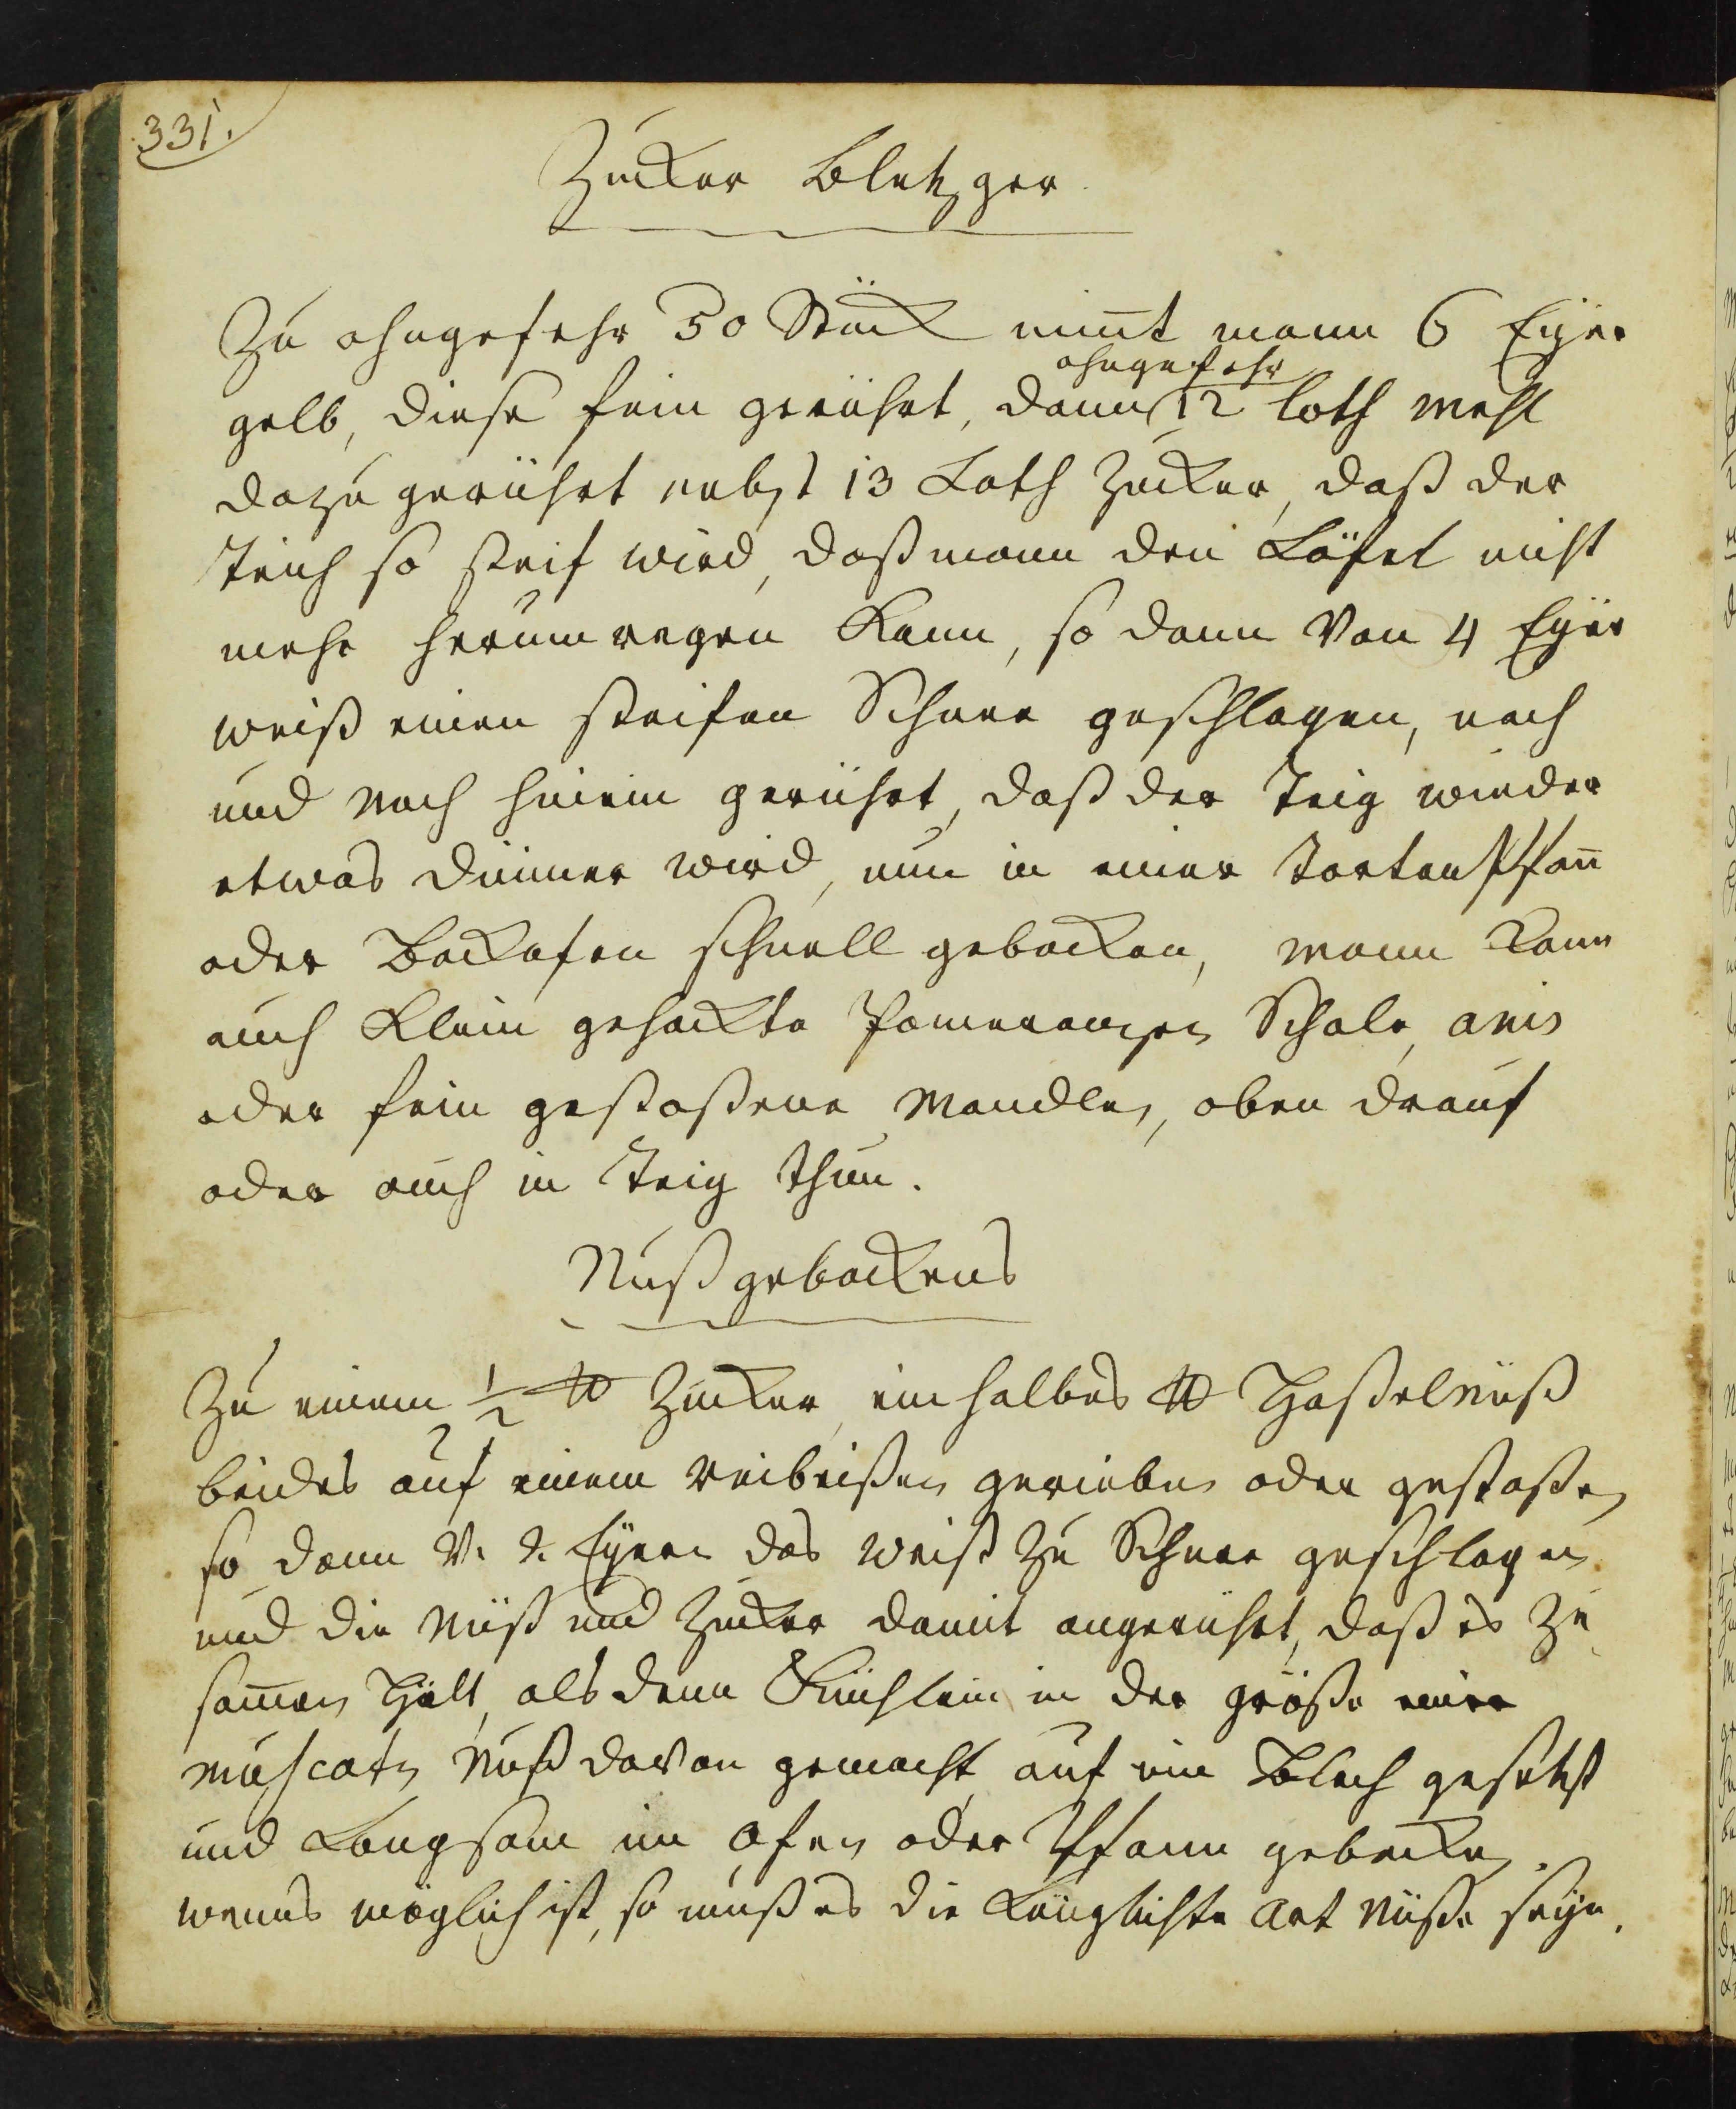 331.
Zucker Bletzger
Zu ohngefehr 50 Stück nim̄t mann 6 Eÿer
gelb, diese fein gerührt, dann ohngefehr 12 loth Mehl
dazu gerührt nebst 13 Loth Zucker, daß der
Teich so steif wird, daß mann den Löfel nicht
mehr herum regen kann, so dann Von 4 Eÿer
weiß einen steifen Schnee geschlagen, nach
und Nach hinein gerührt, daß der Teig wieder
etwas dünner wird, nun in einer Torten Pfan̄
oder Backofen schnell gebacken, mann kann
auch Klein gehackte Pomeranzen Schale, anis
oder fein gestoßene Mandlen, oben drauf
oder auch in Teig thun.
Nuß gebackens
Zu einem ½ ℔ Zucker, ein halbes ℔ Haßelnüß
beides auf einem reibeißen gerieben oder gestoßen
so dann V. 2. Eÿern das weiß zu Schnee geschlagen
und die Nüß und Zucker damit angerührt, daß es zu
sam̄en Hält, als dann Küchlein in der größe einer
Muscaten Nuß davon gemacht auf ein Blech gesetzt
und Langsam im Ofen oder Pfann gebacken.
wenns möglich ist, so muß es die Länglichte Art Nüße seÿn.